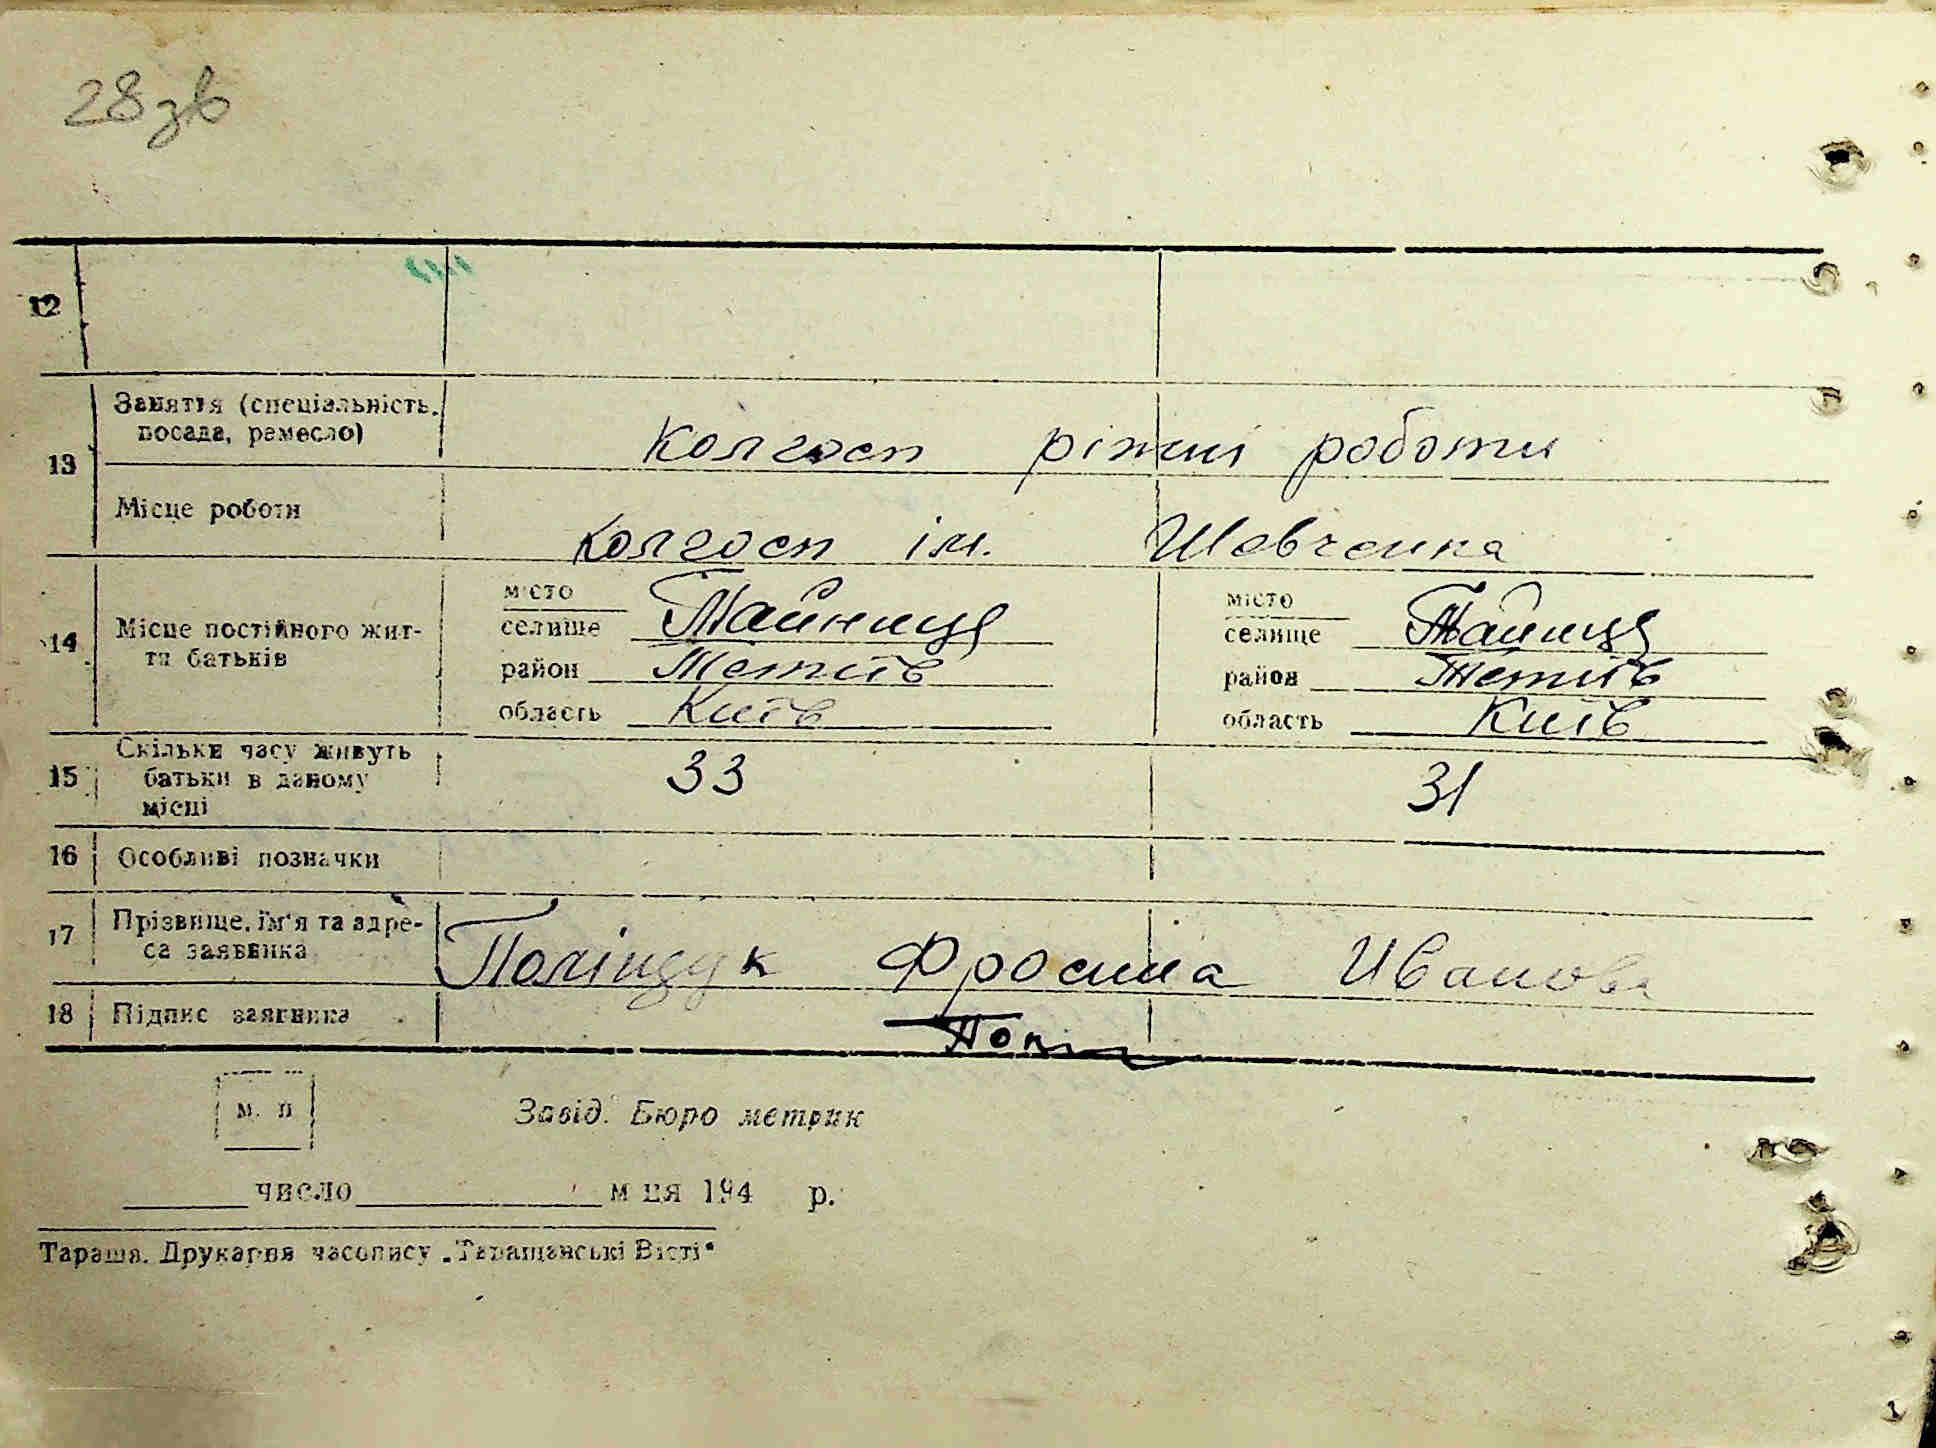 28зв
12
13 Заняття (спеціальність, посада, ремесло) Колгосп ріжні роботи
Місце роботи Колгосп ім. Шевченка
14 Місце постійного життя батьків
місто
селище Тайниця
район Тетіїв
область Київ
місто
селище Тайниця
район Тетіїв
область Київ
15 Скільки часу живуть батьки в даному місці 33 31
16 Особливі позначки
17 Прізвище, ім'я та адреса заявника Поліщук Фросина Иванов
18 Підпис заявника Пол
м. п
Завід. Бюро метрик
число м ця 194 р.
Тараща. Друкарня часопису „Таращанські Вісті"